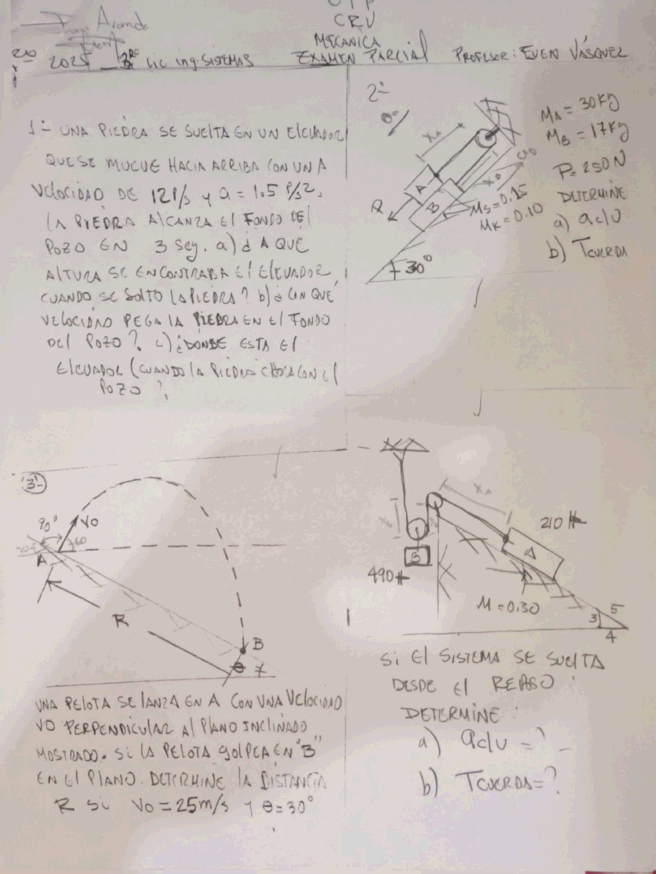 UTP
CRV
MECANICA
2025 3RO lic ing. SISTEMAS EXAMEN PARCIAL PROFESOR: EUEN VÁSQUEZ
1- UNA PIEDRA SE SUELTA EN UN ElCUADOR
QUE SE MUEVE HACIA ARRIBA CON UNA
VELOCIDAD DE 12 P/s y a = 1.5 P/s².
LA PIEDRA ALCANZA El FONDO DEL
POZO EN 3 seg. a) ¿ A QUE
ALTURA SE ENCONTRABA El ElEVADOR
CUANDO SE SOLTO LA PIEDRA? b) ¿CON QUÉ
VELOCIDAD PEGA LA PIEDRA EN El FONDO
DEl POZO? c) ¿DÓNDE ESTA El
ElEVADOR (CUANDO LA PIEDRA CHOCA CON El
POZO?
2-
XA
A
B
P
XB
Ms=0.15
MK=0.10
30°
MA = 30Kg
MB = 17Kg
P= 250N
DETERMINE
a) ac/u
b) TCUERDA
3-
90°
V0
60
A
R
B
θ
UNA PELOTA SE LANZA EN A CON UNA VELOCIDAD
VO PERPENDICULAR Al PlANO INClINADO
MOSTRADO. SI LA PELOTA GOLPEA EN "B"
EN El PLANO. DETERMINE LA DISTANCIA
R si V0 = 25m/s y θ=30°
XA
210 #
A
B
490 #
M=0.30
3
5
4
Si El SISTEMA SE SUELTA
DESDE El REPOSO
DETERMINE:
a) ac/u = ?
b) TCUERDA=?